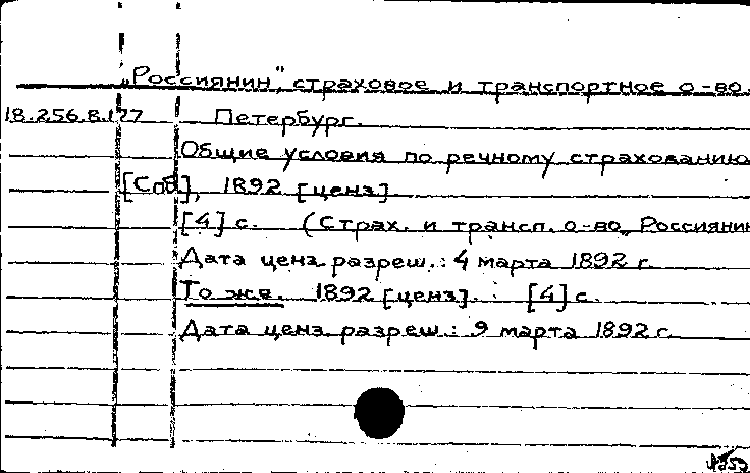 „Россиянин", страховое и транспортное о-во.
18.256.8.177 Петербург.
Общие условия по речному страхованию
[Спб], 1892 [ценз].
[4] с. (Страх. и трансп. о-во „Россиянин
Дата ценз. разреш.: 4 марта 1892 г.
То же. 1892 [ценз]. [4] с.
Дата ценз. разреш.: 9 марта 1892 г.